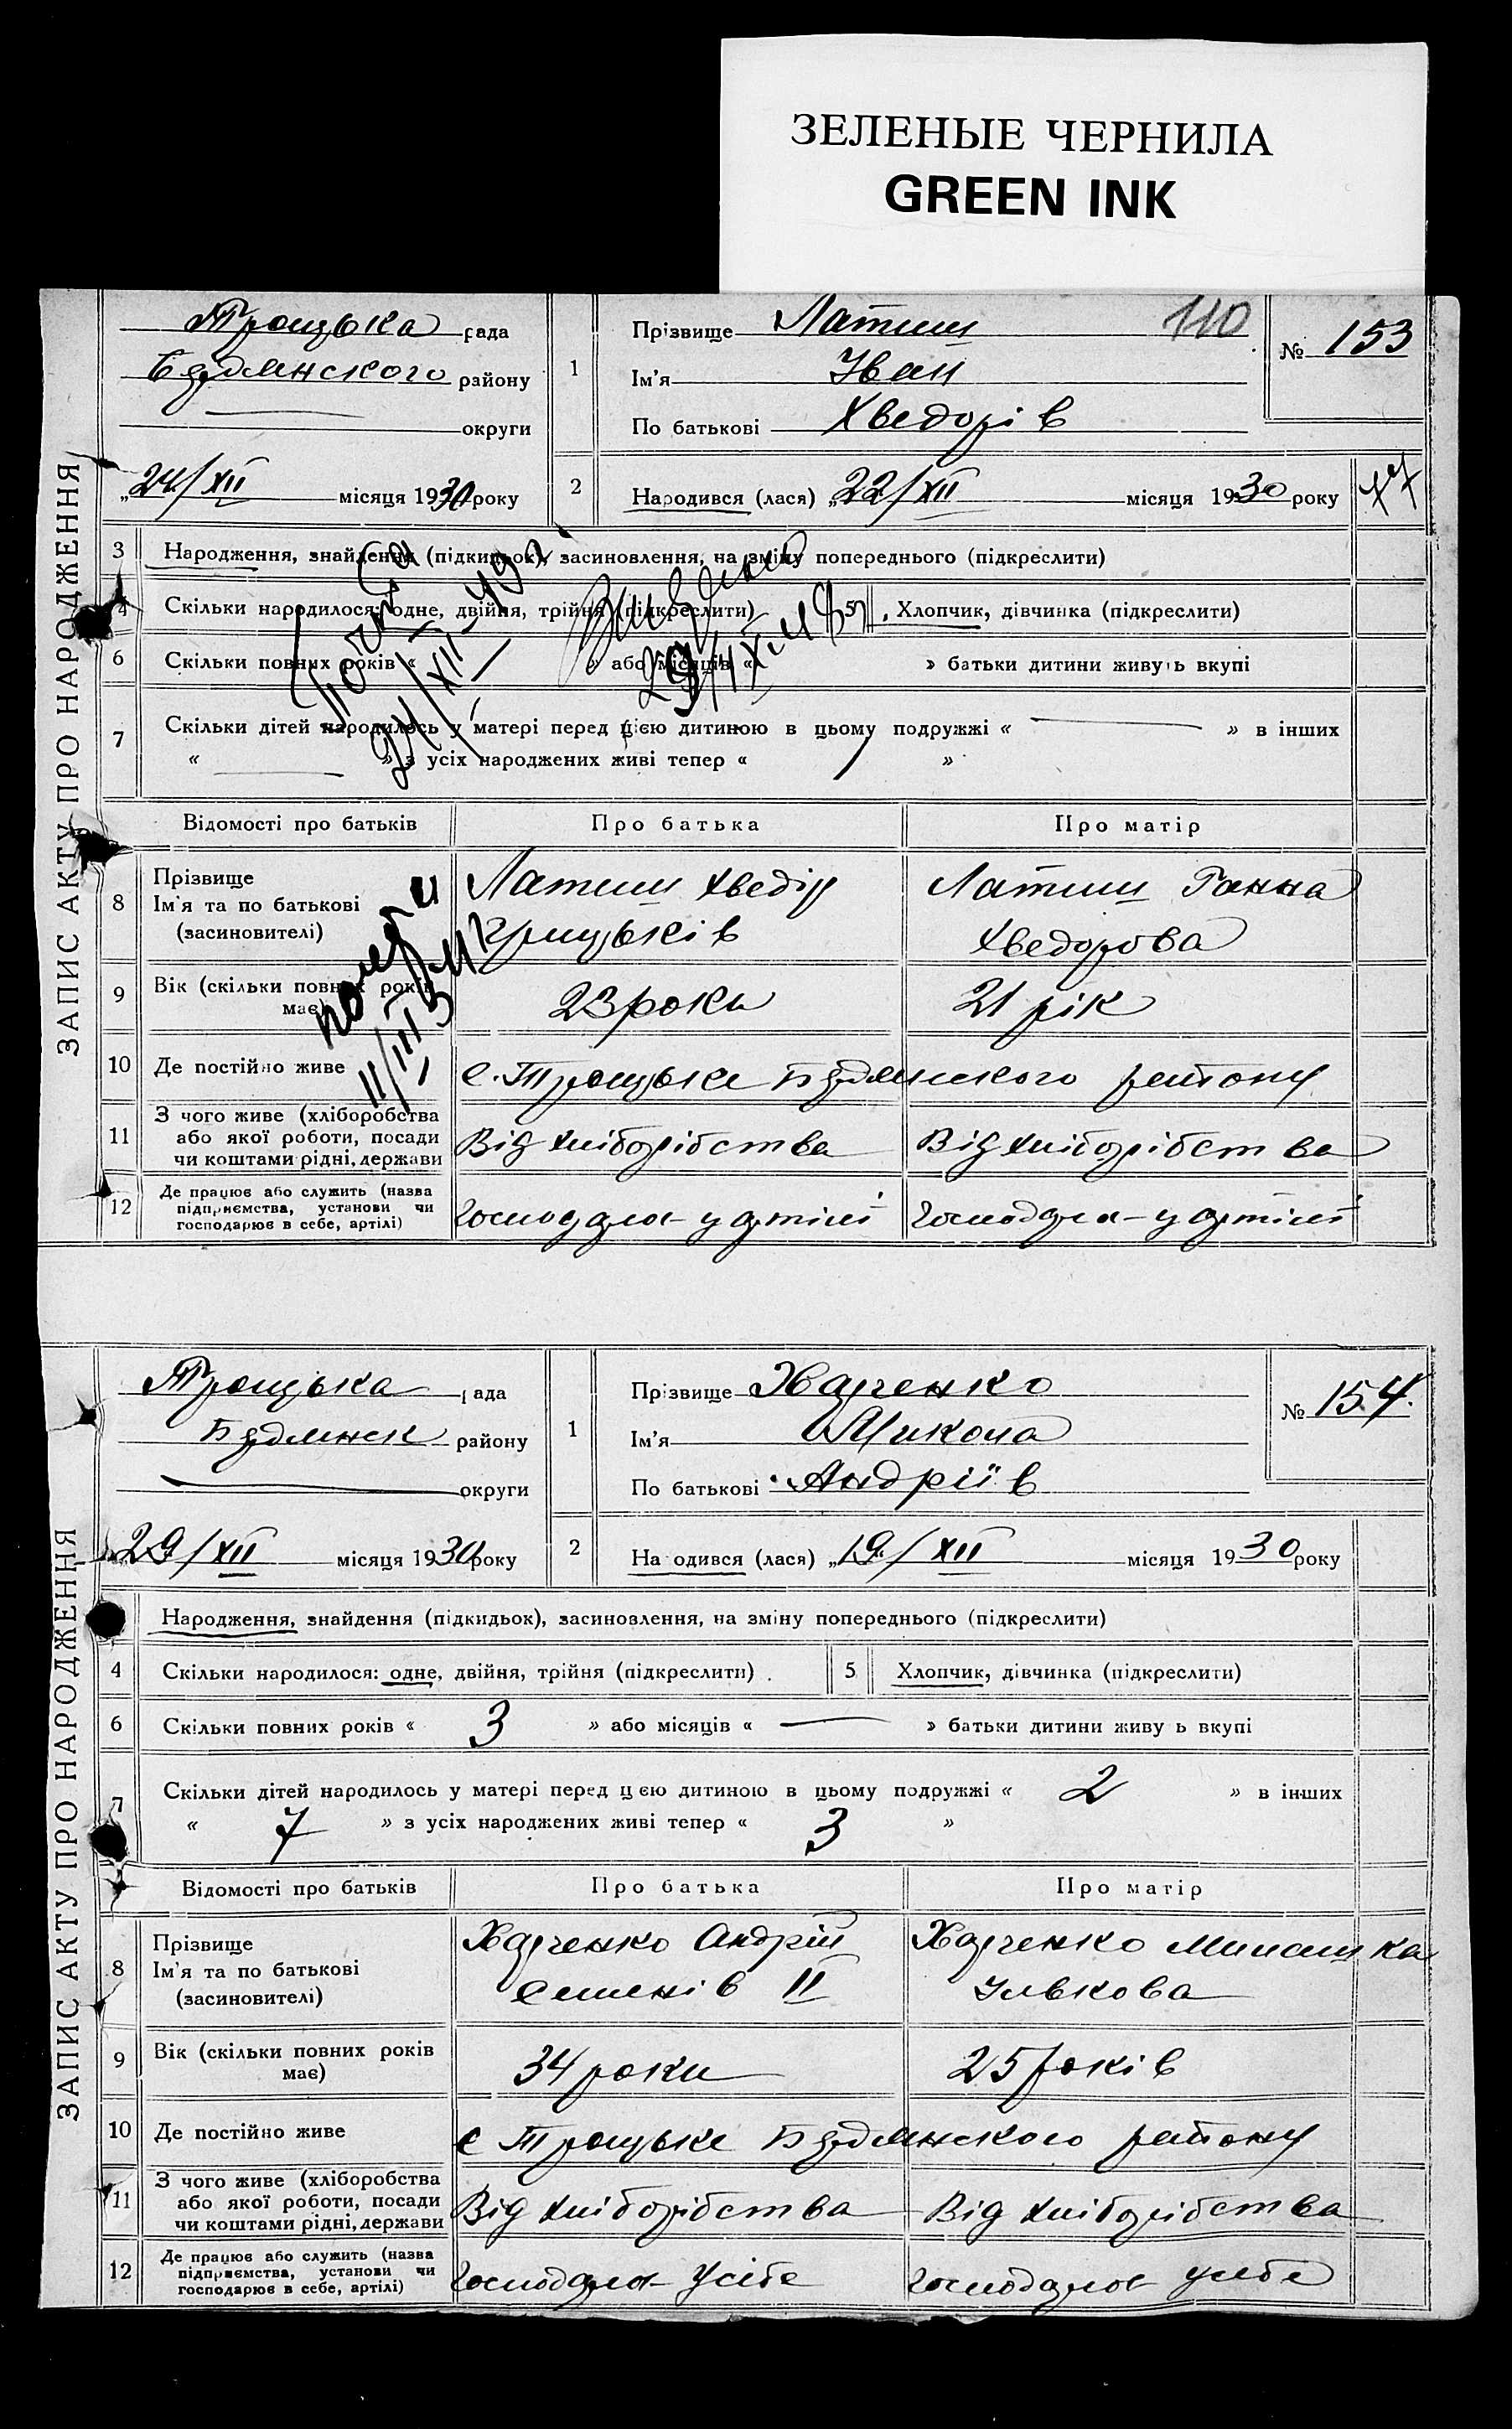 ЗЕЛЕНЫЕ ЧЕРНИЛА
GREEN INK
ЗАПИС АКТУ ПРО НАРОДЖЕННЯ
Троцька рада
Будянського району
округи
„24/XII місяця 1930 року
1
Прізвище Латиш
110
№ 153
Ім'я Іван
По батькові Хведорів
2
Народився (лася) „22/XII місяця 1930 року
77
3 Народження, знайдення (підкидьок), засиновлення, на зміну попереднього (підкреслити)
4 Скільки народилося: одне, двійня, трійня (підкреслити) 5 Хлопчик, дівчинка (підкреслити)
6 Скільки повних років « » або місяців « » батьки дитини живуть вкупі
7 Скільки дітей народилось у матері перед цією дитиною в цьому подружжі « — » в інших
« — » з усіх народжених живі тепер « »
24/XII
11/III
Відомості про батьків Про батька Про матір
8 Прізвище
Ім'я та по батькові
(засновителі)
Латиш Хведір
Грицьків
Латиш Ганна
Хведорова
9 Вік (скільки повних років
має)
23 роки
21 рік
10 Де постійно живе с. Троцьке Будянського району
11 З чого живе (хліборобства
або якої роботи, посади
чи коштами рідні, держави
Від хліборібства
Від хліборібства
12 Де працює або служить (назва
підприємства, установи чи
господарює в себе, артілі)
Господарює у артілі
Господарює у артілі
ЗАПИС АКТУ ПРО НАРОДЖЕННЯ
Троцька рада
Будянськ району
округи
29/XII місяця 1930 року
1
Прізвище Харченко
№ 154.
Ім'я Микола
По батькові Андріїв
2
Народився (лася) „19/XII місяця 1930 року
Народження, знайдення (підкидьок), засиновлення, на зміну попереднього (підкреслити)
4 Скільки народилося: одне, двійня, трійня (підкреслити) 5 Хлопчик, дівчинка (підкреслити)
6 Скільки повних років « 3 » або місяців « — » батьки дитини живуть вкупі
7 Скільки дітей народилось у матері перед цією дитиною в цьому подружжі « 2 » в інших
« 7 » з усіх народжених живі тепер « 3 »
Відомості про батьків Про батька Про матір
8 Прізвище
Ім'я та по батькові
(засиновителі)
Харченко Андрій
Семенів II
Харченко Милашка
Ількова
9 Вік (скільки повних років
має)
34 роки
25 років
10 Де постійно живе с Троцьке Будянського району
11 З чого живе (хліборобства
або якої роботи, посади
чи коштами рідні, держави
Від хліборібства
Від хліборібства
12 Де працює або служить (назва
підприємства, установи чи
господарює в себе, артілі)
Господарює усебе
Господарює усебе